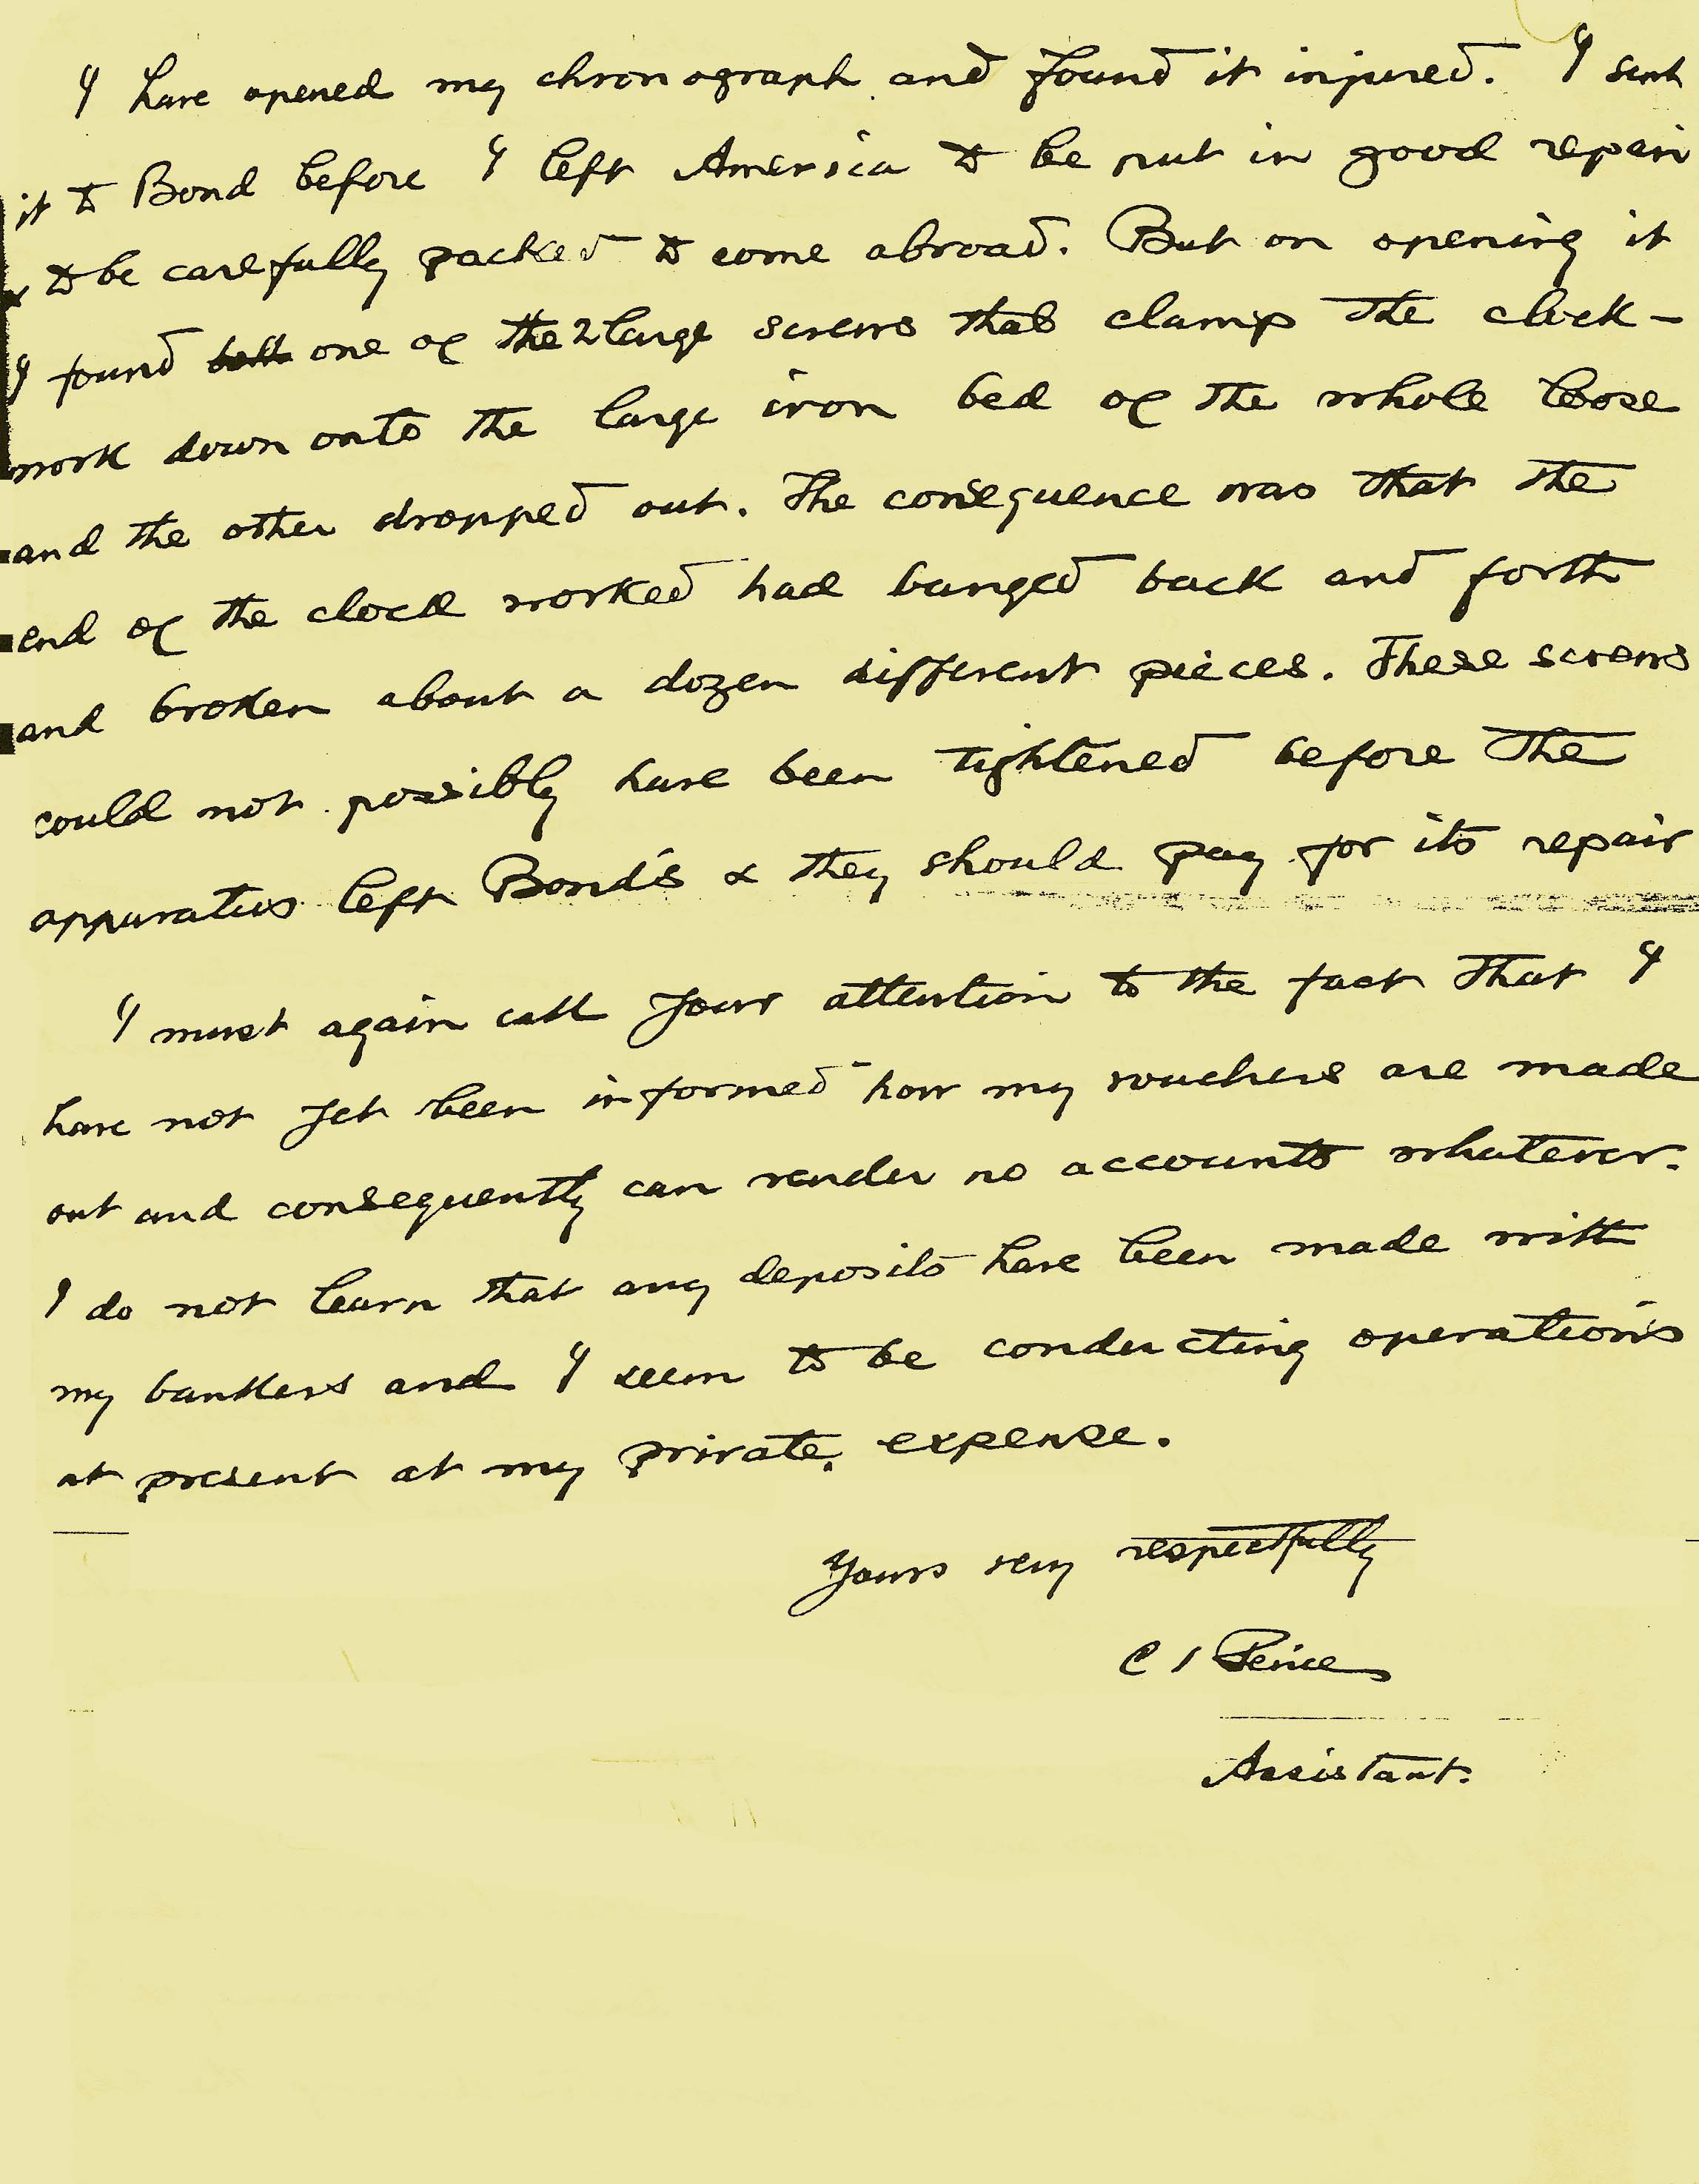 I have opened my chronograph and found it injured. I sent
it to Bond before I left America to be put in good repair
& to be carefully packed to come abroad. But on opening it
I found both one of the 2 large screws that clamp the clock-
work down onto the large iron bed of the whole loose
and the other dropped out. The consequence was that the
end of the clock worked had banged back and forth
and broken about a dozen different pieces. These screws
could not possibly have been tightened before the
apparatus left Bond's & they should pay for its repair
I must again call your attention to the fact that I
have not yet been informed how my vouchers are made
out and consequently can render no accounts whatever.
I do not learn that any deposits have been made with
my bankers and I seem to be conducting operations
at present at my private expense.
Yours very respectfully
C S Peirce
Assistant.